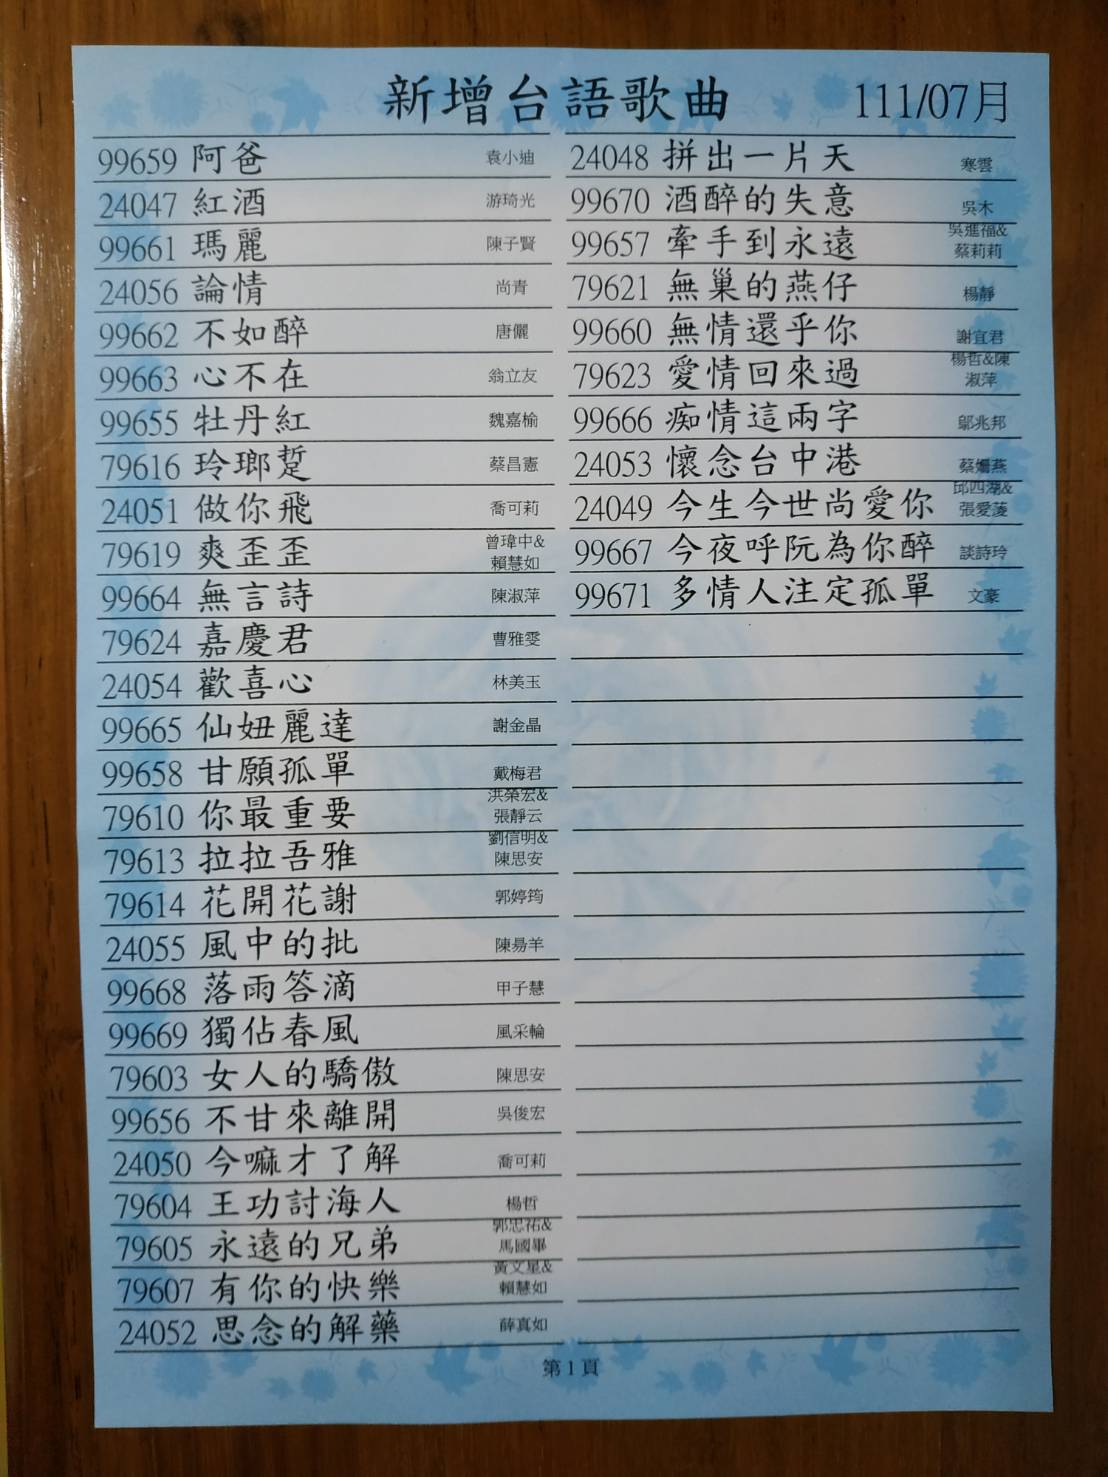 新增台語歌曲 111/07月
99659 阿爸 袁小迪
24047 紅酒 游琦光
99661 瑪麗 陳子賢
24056 論情 尚青
99662 不如醉 唐儷
99663 心不在 翁立友
99655 牡丹紅 魏嘉榆
79616 玲瑯踅 蔡昌憲
24051 做你飛 喬可莉
79619 爽歪歪 曾瑋中&賴慧如
99664 無言詩 陳淑萍
79624 嘉慶君 曹雅雯
24054 歡喜心 林美玉
99665 仙妞麗達 謝金晶
99658 甘願孤單 戴梅君
79610 你最重要 洪榮宏&張靜云
79613 拉拉吾雅 劉信明&陳思安
79614 花開花謝 郭婷筠
24055 風中的批 陳昜羊
99668 落雨答滴 甲子慧
99669 獨佔春風 風采輪
79603 女人的驕傲 陳思安
99656 不甘來離開 吳俊宏
24050 今嘛才了解 喬可莉
79604 王功討海人 楊哲
79605 永遠的兄弟 郭忠祐&馬國畢
79607 有你的快樂 黃文星&賴慧如
24052 思念的解藥 薛真如
24048 拼出一片天 寒雲
99670 酒醉的失意 吳木
99657 牽手到永遠 吳進福&蔡莉莉
79621 無巢的燕仔 楊靜
99660 無情還乎你 謝宜君
79623 愛情回來過 楊哲&陳淑萍
99666 痴情這兩字 鄔兆邦
24053 懷念台中港 蔡姍燕
24049 今生今世尚愛你 邱四湖&張愛菱
99667 今夜呼阮為你醉 談詩玲
99671 多情人注定孤單 文豪
第1頁